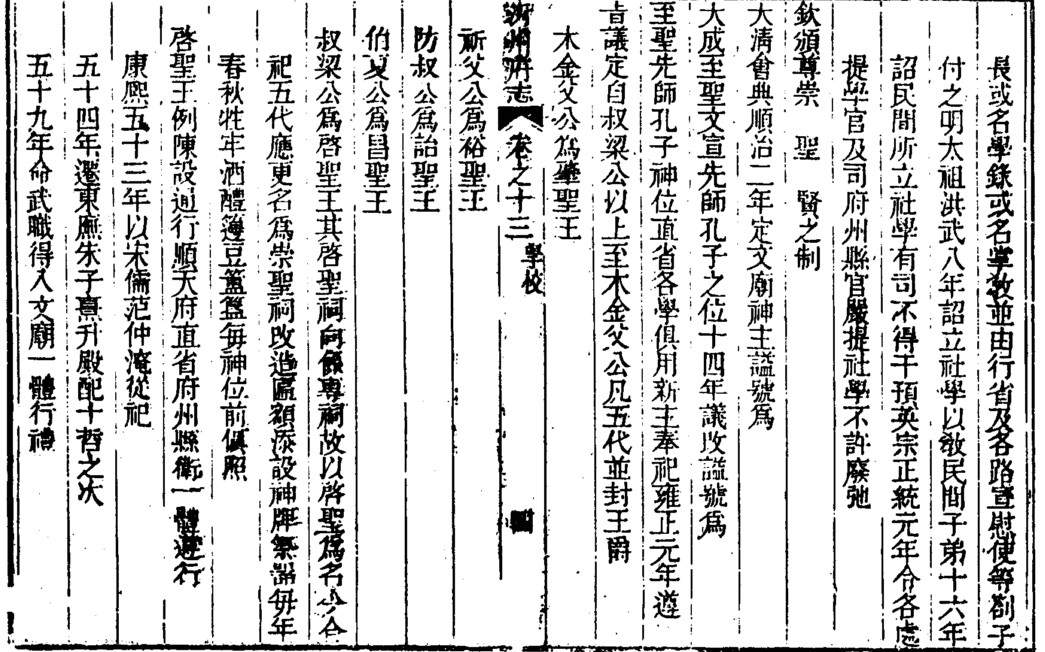 長或名學錄或名掌教並由行省及各路宣慰使等劄子
付之明太祖洪武八年詔立社學以敎民間子弟十六年
詔民間所立社學有司不得干預英宗正統元年令各處
提學官及司府州縣官嚴提社學不許廢弛
欽頒尊崇 聖 賢之制
大淸會典順治二年定文廟神主謚號爲
大成至聖文宣先師孔子之位十四年議改謚號爲
至聖先師孔子神位直省各學俱用新主奉祀雍正元年遵
旨議定自叔梁公以上至木金父公凡五代並封王爵
木金父公爲肇聖王
沂州府志 卷之十三 學校 四
祈父公爲裕聖王
防叔公爲詒聖王
伯夏公爲昌聖王
叔梁公爲啓聖王其啓聖祠向係專祠故以啓聖爲名今合
祀五代應更名爲崇聖祠改造匾額添設神牌祭器每年
春秋牲牢酒醴籩豆簠簋每神位前俱照
啓聖王例陳設通行順天府直省府州縣衛一體遵行
康熙五十三年以宋儒范仲淹從祀
五十四年遷東廡朱子熹升殿配十哲之次
五十九年命武職得入文廟一體行禮